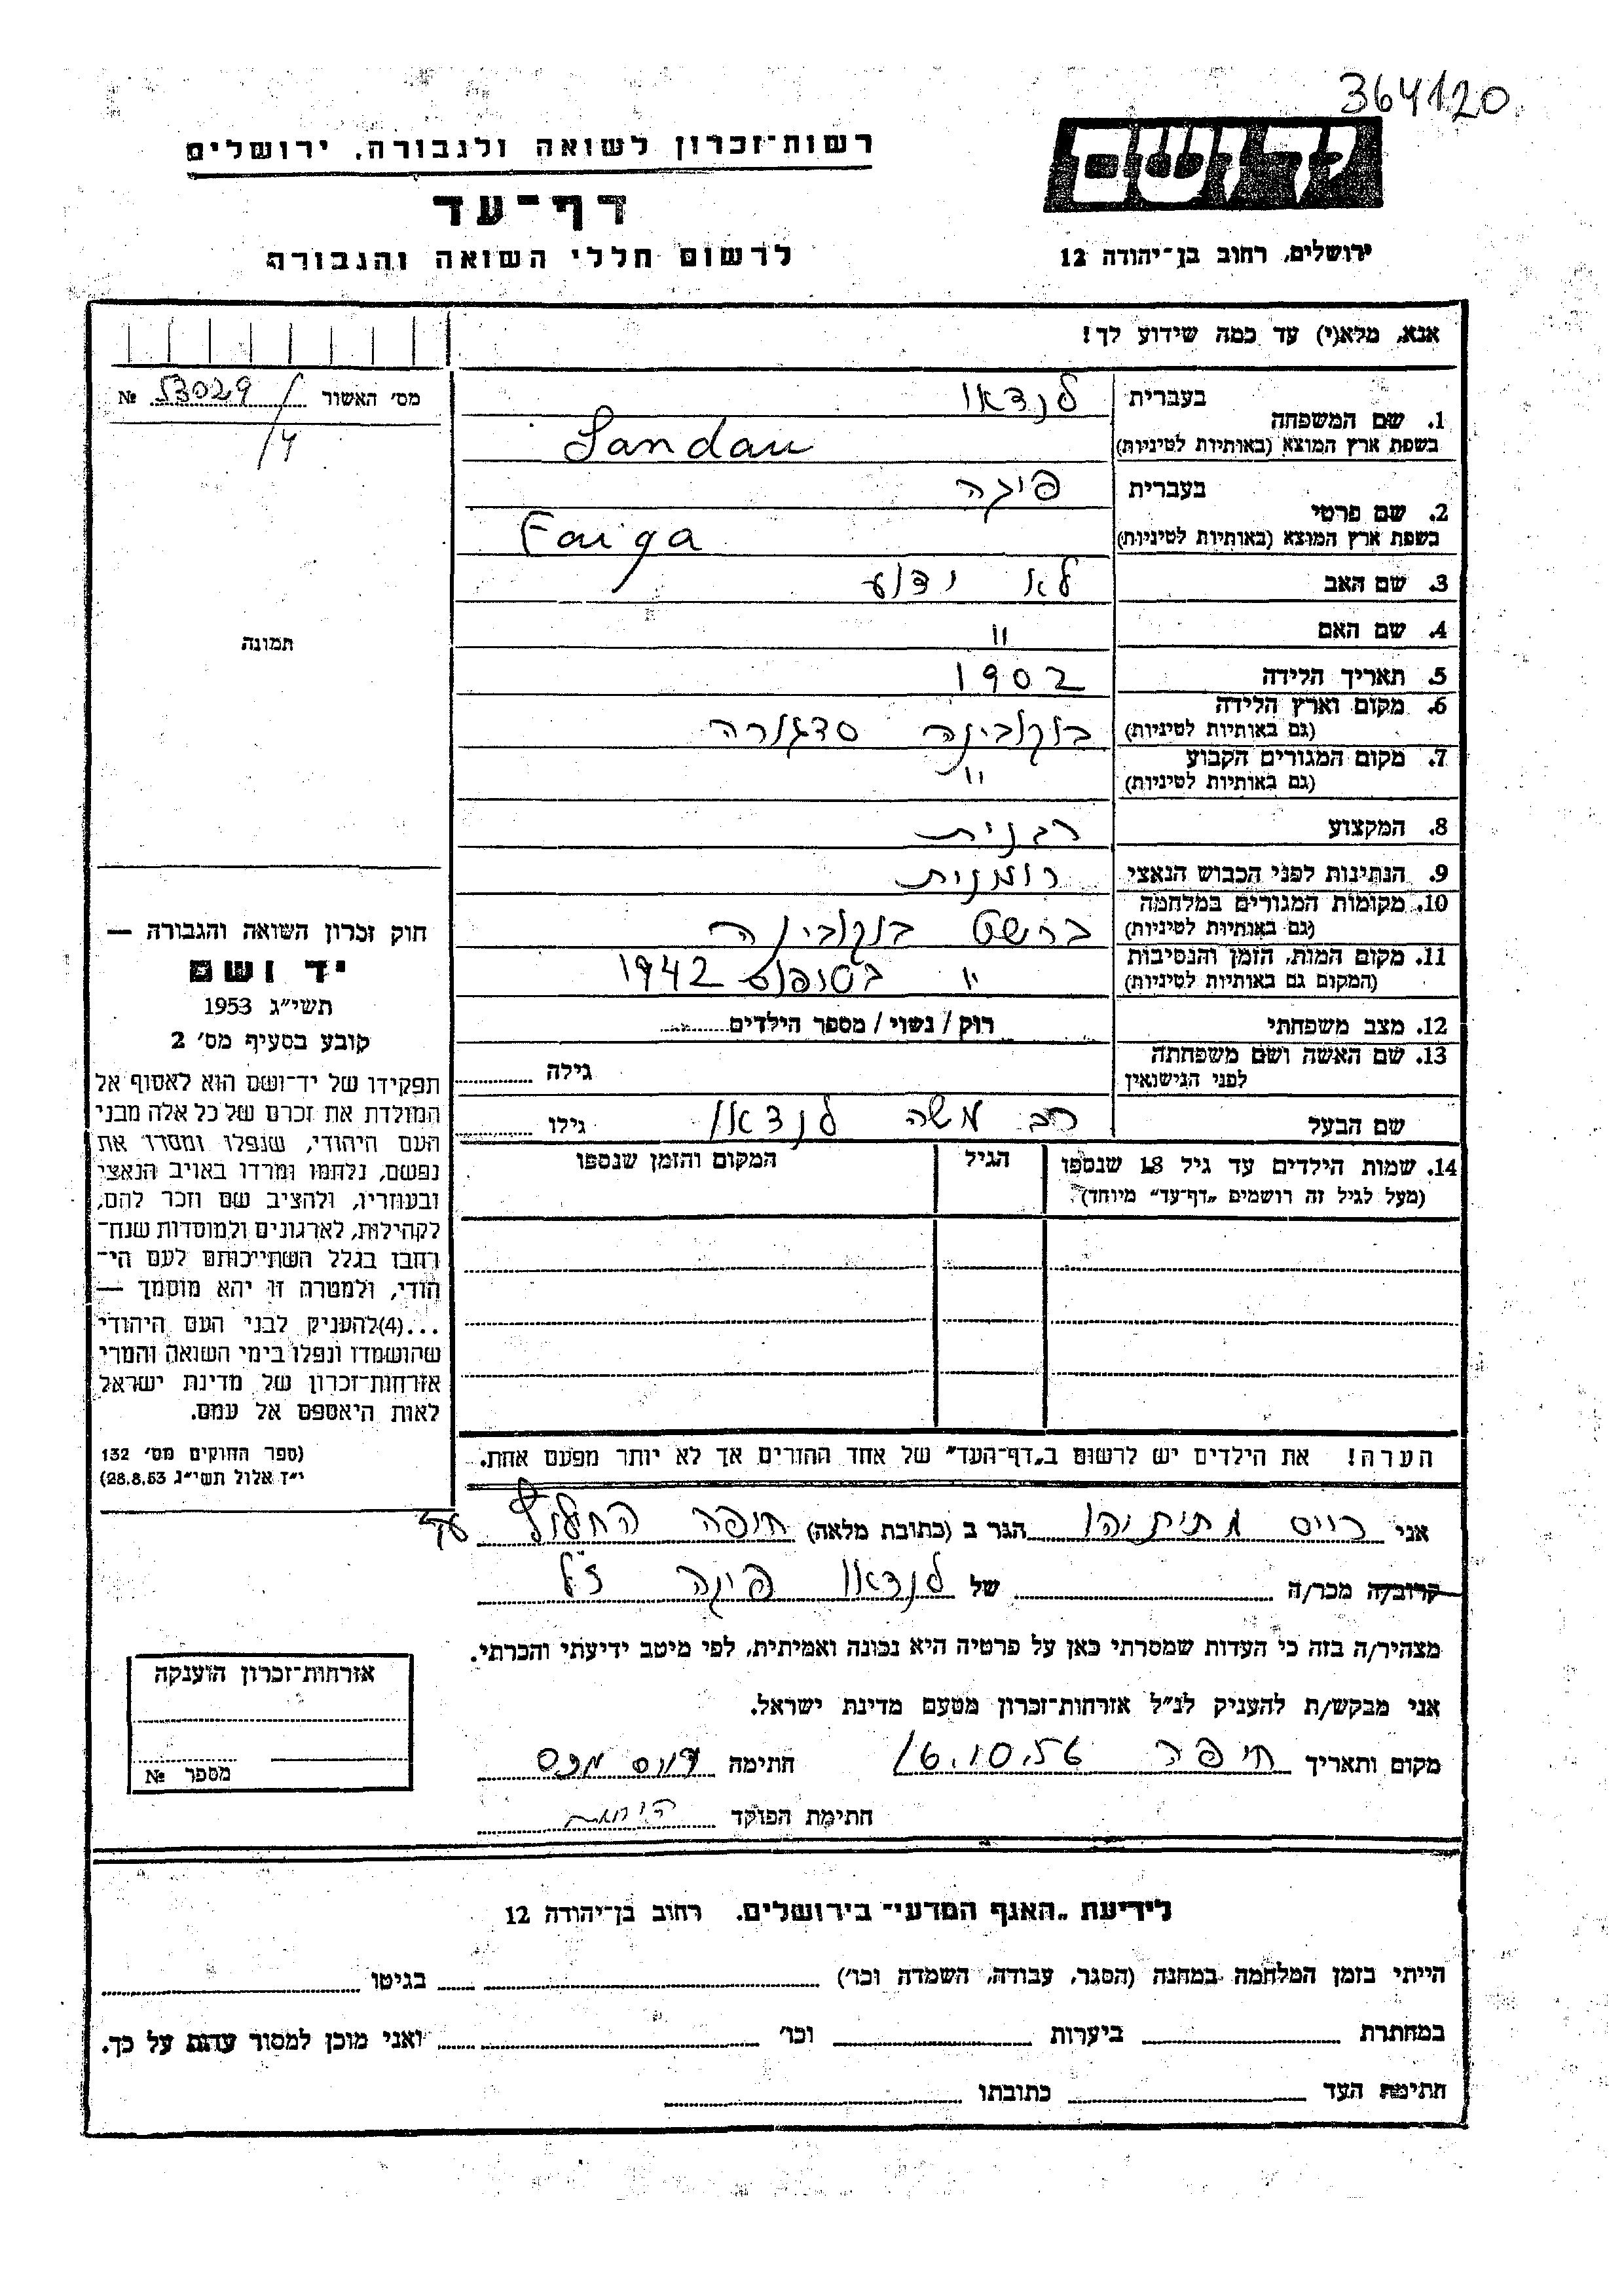 364120
יד ושם
רשות־זכרון לשואה ולגבורה, ירושלים
דף־עד
לרשום חללי השואה והגבורה
ירושלים, רחוב בן־יהודה 12
אנא, מלא(י) עד כמה שידוע לך!
מס׳ האשור 53029 №
/4
1. שם המשפחה
בעברית לנדאו
בשפת ארץ המוצא (באותיות לטיניות) Landau
2. שם פרטי
בעברית פיגה
בשפת ארץ המוצא (באותיות לטיניות) Faiga
3. שם האב לא ידוע
4. שם האם "
5. תאריך הלידה 1902
6. מקום וארץ הלידה
(גם באותיות לטיניות) בוקובינה סדגורה
7. מקום המגורים הקבוע "
(גם באותיות לטיניות)
8. המקצוע רבנית
9. הנתינות לפני הכבוש הנאצי רומנית
10. מקומות המגורים במלחמה
(גם באותיות לטיניות) ברשט בוקובינה
11. מקום המות, הזמן והנסיבות " בטופוס 1942
(המקום גם באותיות לטיניות)
12. מצב משפחתי רוק / נשוי / מספר הילדים
13. שם האשה ושם משפחתה
לפני הנישואין גילה
שם הבעל רב משה לנדאו גילו
14. שמות הילדים עד גיל 18 שנספו הגיל המקום והזמן שנספו
(מעל לגיל זה רושמים „דף־עד״ מיוחד)
הערה! את הילדים יש לרשום ב„דף־העד״ של אחד ההורים אך לא יותר מפעם אחת.
תמונה
חוק זכרון השואה והגבורה —
יד ושם
תשי״ג 1953
קובע בסעיף מס׳ 2
תפקידו של יד־ושם הוא לאסוף אל
המולדת את זכרם של כל אלה מבני
העם היהודי, שנפלו ומסרו את
נפשם, נלחמו ומרדו באויב הנאצי
ובעוזריו, ולהציב שם וזכר להם,
לקהילות, לארגונים ולמוסדות שנח־
רבו בגלל השתייכותם לעם הי־
הודי, ולמטרה זו יהא מוסמך —
...(4)להעניק לבני העם היהודי
שהושמדו ונפלו בימי השואה והמרי
אזרחות־זכרון של מדינת ישראל
לאות היאספם אל עמם.
(ספר החוקים מס׳ 132
י״ז אלול תשי״ג 28.8.53)
אני וייס מתיתיהו הגר ב (כתובת מלאה) חיפה החלוץ
קרוב/ה מכר/ה של לנדאו פיגה ז״ל
מצהיר/ה בזה כי העדות שמסרתי כאן על פרטיה היא נכונה ואמיתית, לפי מיטב ידיעתי והכרתי.
אני מבקש/ת להעניק לנ״ל אזרחות־זכרון מטעם מדינת ישראל.
מקום ותאריך חיפה 16.10.56 חתימה
חתימת הפוקד
אזרחות־זכרון הוענקה
מספר №
לידיעת „האגף המדעי״ בירושלים. רחוב בן־יהודה 12
הייתי בזמן המלחמה במחנה (הסגר, עבודה, השמדה וכו׳) בגיטו
במחתרת ביערות וכו׳ ואני מוכן למסור עדות על כך.
חתימת העד כתובתו